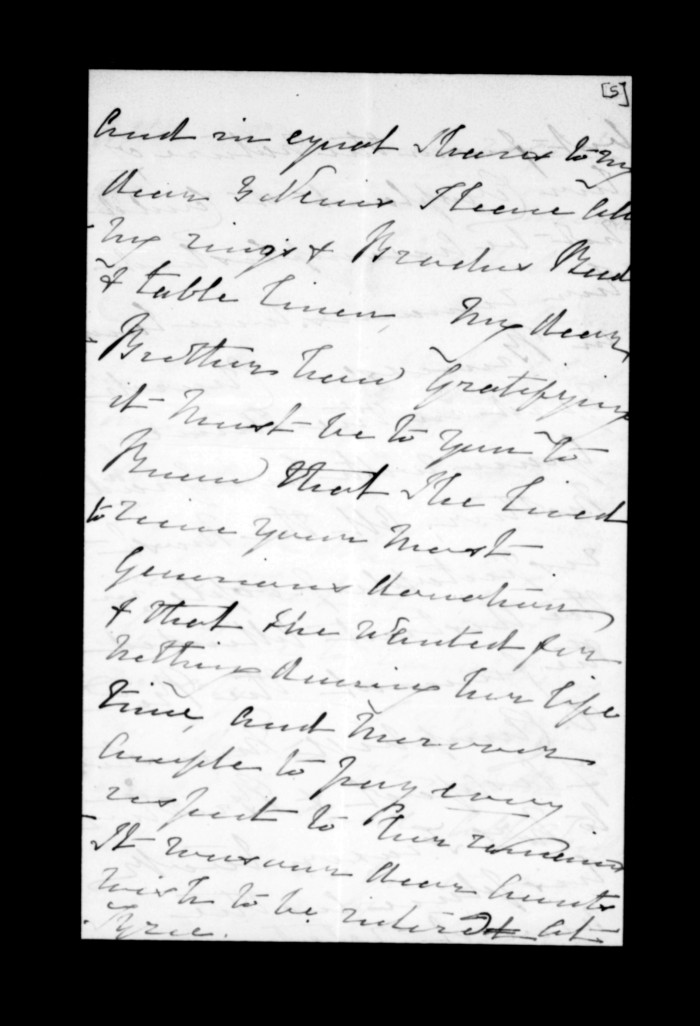 [5]
and in equal Shares to my
dear Sisters I leave all
my rings & Broches Bed
& table linen, My dear
Brothers how Gratifying
it must be to you to
Know that She lived
to receive your most
Generious donation
& that She wanted for
nothing during her life
time, and moreover
ample to pay every
respect to her remains
It was our dear Aunts
wish to be intered at
Tyrie.